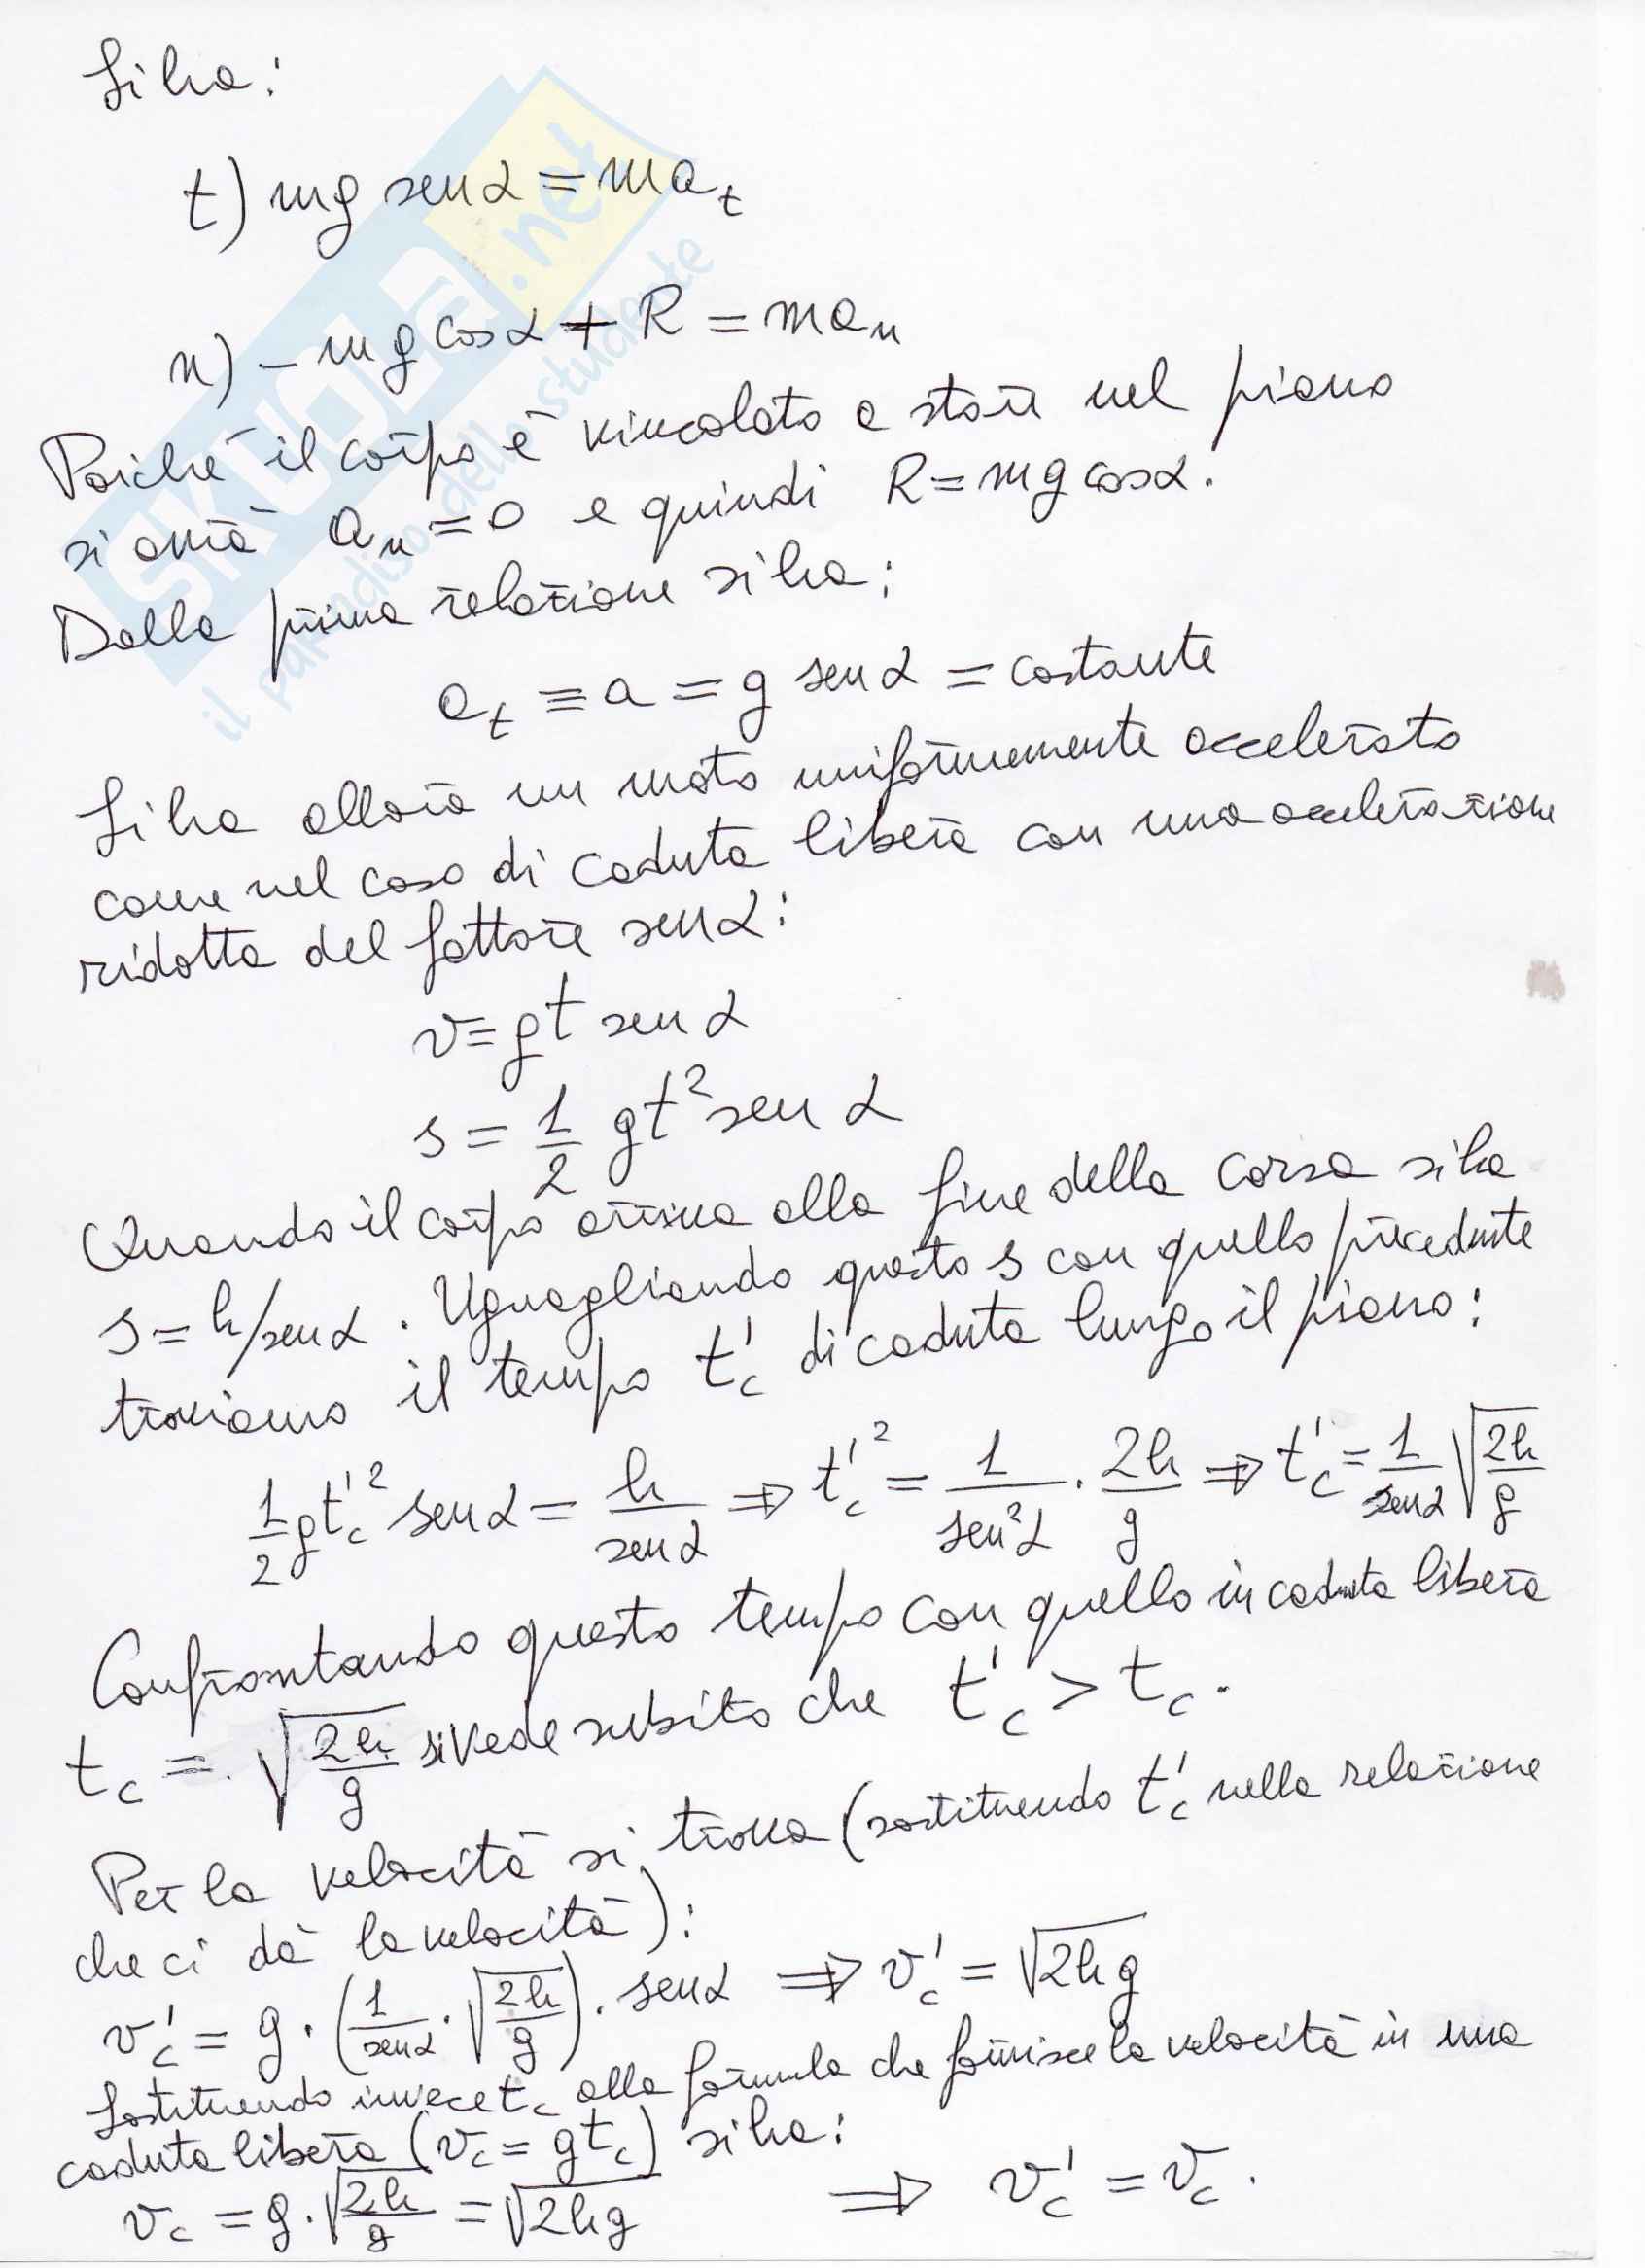 Si ha:
t) mg sen α = ma_t
n) - mg cos α + R = ma_n
Poiché il corpo è vincolato a stare nel piano
si avrà a_n = 0 e quindi R = mg cos α.
Dalla prima relazione si ha:
a_t ≡ a = g sen α = costante
Si ha allora un moto uniformemente accelerato
come nel caso di caduta libera con una accelerazione
ridotta del fattore sen α:
v = gt sen α
s = 1/2 gt² sen α
Quando il corpo arriva alla fine della corsa si ha
s = h/sen α. Uguagliando questo s con quello precedente
troviamo il tempo t'_c di caduta lungo il piano:
1/2 gt'_c² sen α = h/sen α ⇒ t'_c² = 1/sen²α · 2h/g ⇒ t'_c = 1/sen α √(2h/g)
Confrontando questo tempo con quello in caduta libera
t_c = √(2h/g) si vede subito che t'_c > t_c.
Per la velocità si trova (sostituendo t'_c nella relazione
che ci dà la velocità):
v'_c = g · (1/sen α · √(2h/g)) · sen α ⇒ v'_c = √2hg
Sostituendo invece t_c alla formula che fornisce la velocità in una
caduta libera (v_c = gt_c) si ha:
v_c = g · √(2h/g) = √2hg ⇒ v'_c = v_c.
SKUOLa.net
il paradiso dello studente